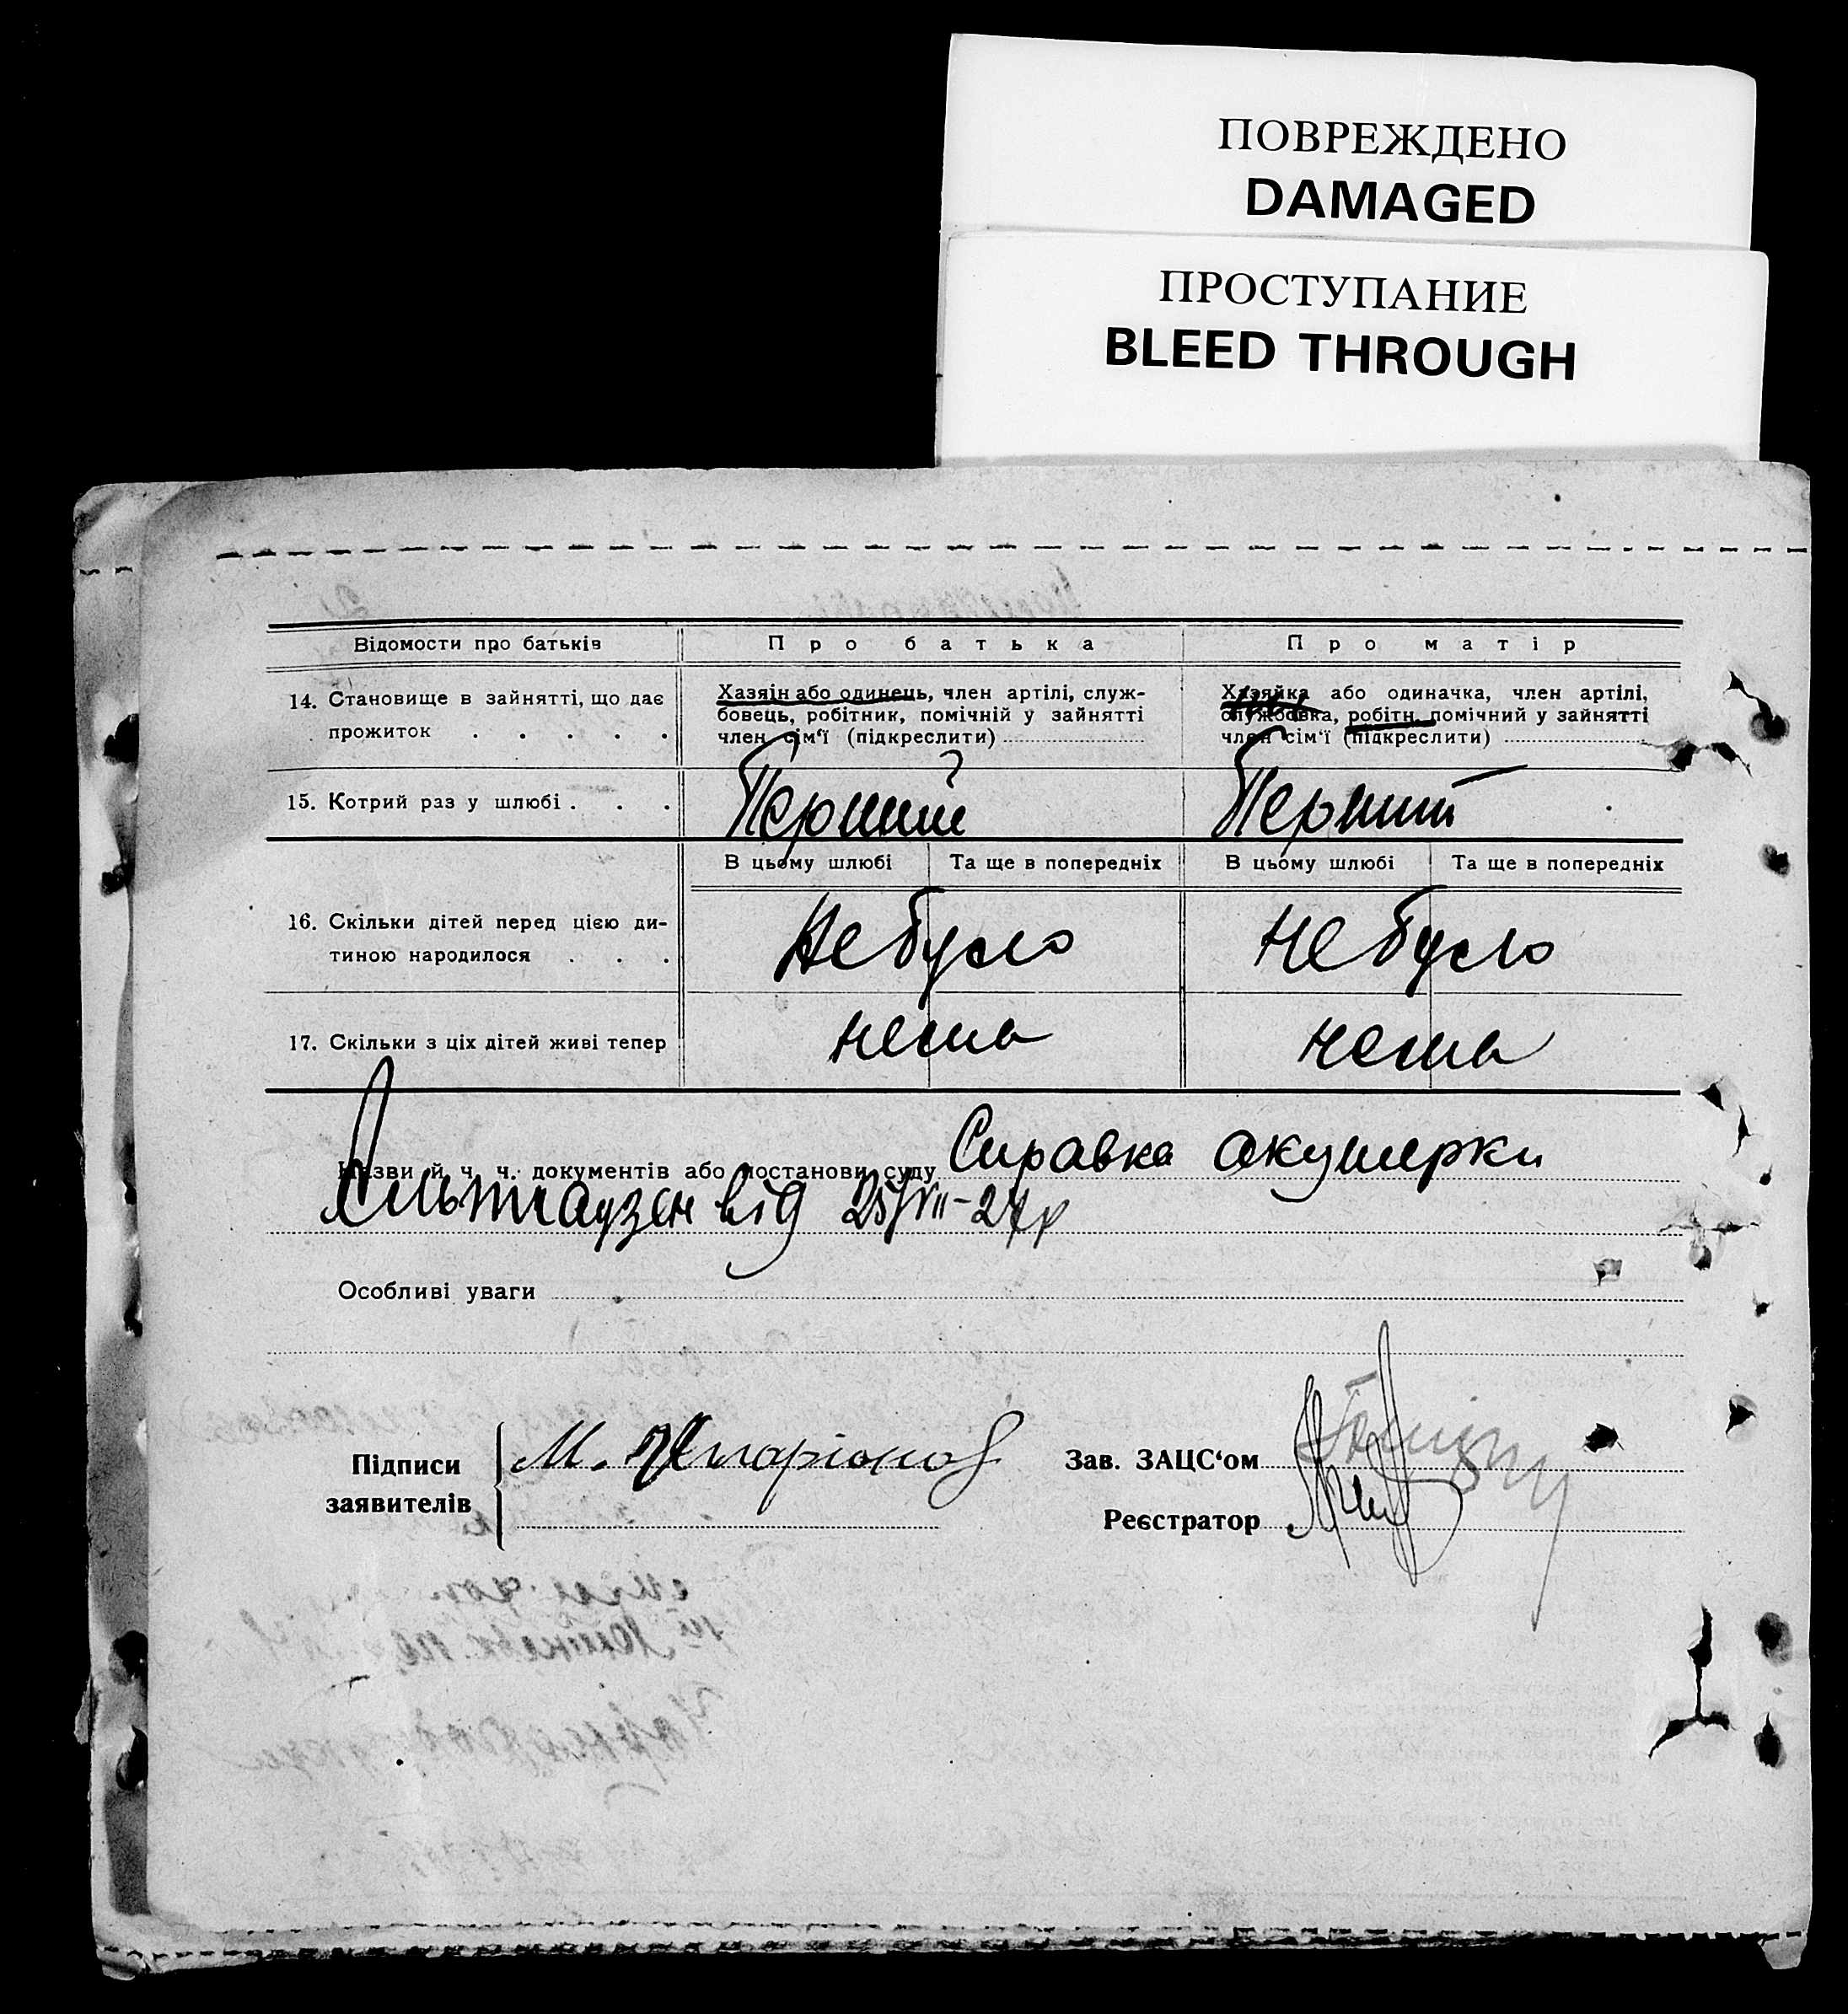 ПОВРЕЖДЕНО
DAMAGED
ПРОСТУПАНИЕ
BLEED THROUGH
Відомости про батьків
Про батька
Про матір
14. Становище в зайнятті, що дає
прожиток . . . . .
Хазяїн або одинець, член артілі, служ-
бовець, робітник, помічній у зайнятті
член сім‘ї (підкреслити)
Хазяйка або одиначка, член артілі,
службовка, робітн. помічний у зайнятті
член сім‘ї (підкреслити)
15. Котрий раз у шлюбі . . .
Перший
Перший
В цьому шлюбі
Та ще в попередніх
В цьому шлюбі
Та ще в попередніх
16. Скільки дітей перед цією ди-
тиною народилося . . .
Не було
Не було
17. Скільки з ціх дітей живі тепер
нема
нема
Назви й ч. ч. документів або постанови суду Справка акушерки
від 25/VII-27р
Особливі уваги
Підписи
заявителів
М. Іларіонов
Зав. ЗАЦС‘ом
Реєстратор